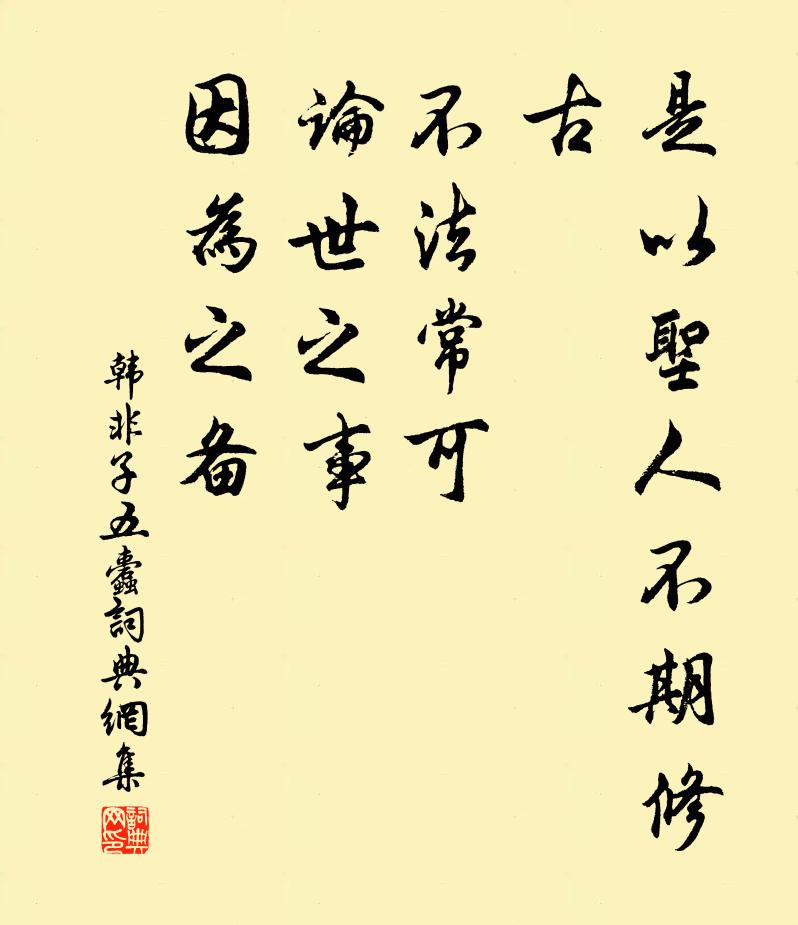 是以聖人不期修
古
不法常可
論世之事
因為之备
韩非子五蠹詞典網集
詞典
网印